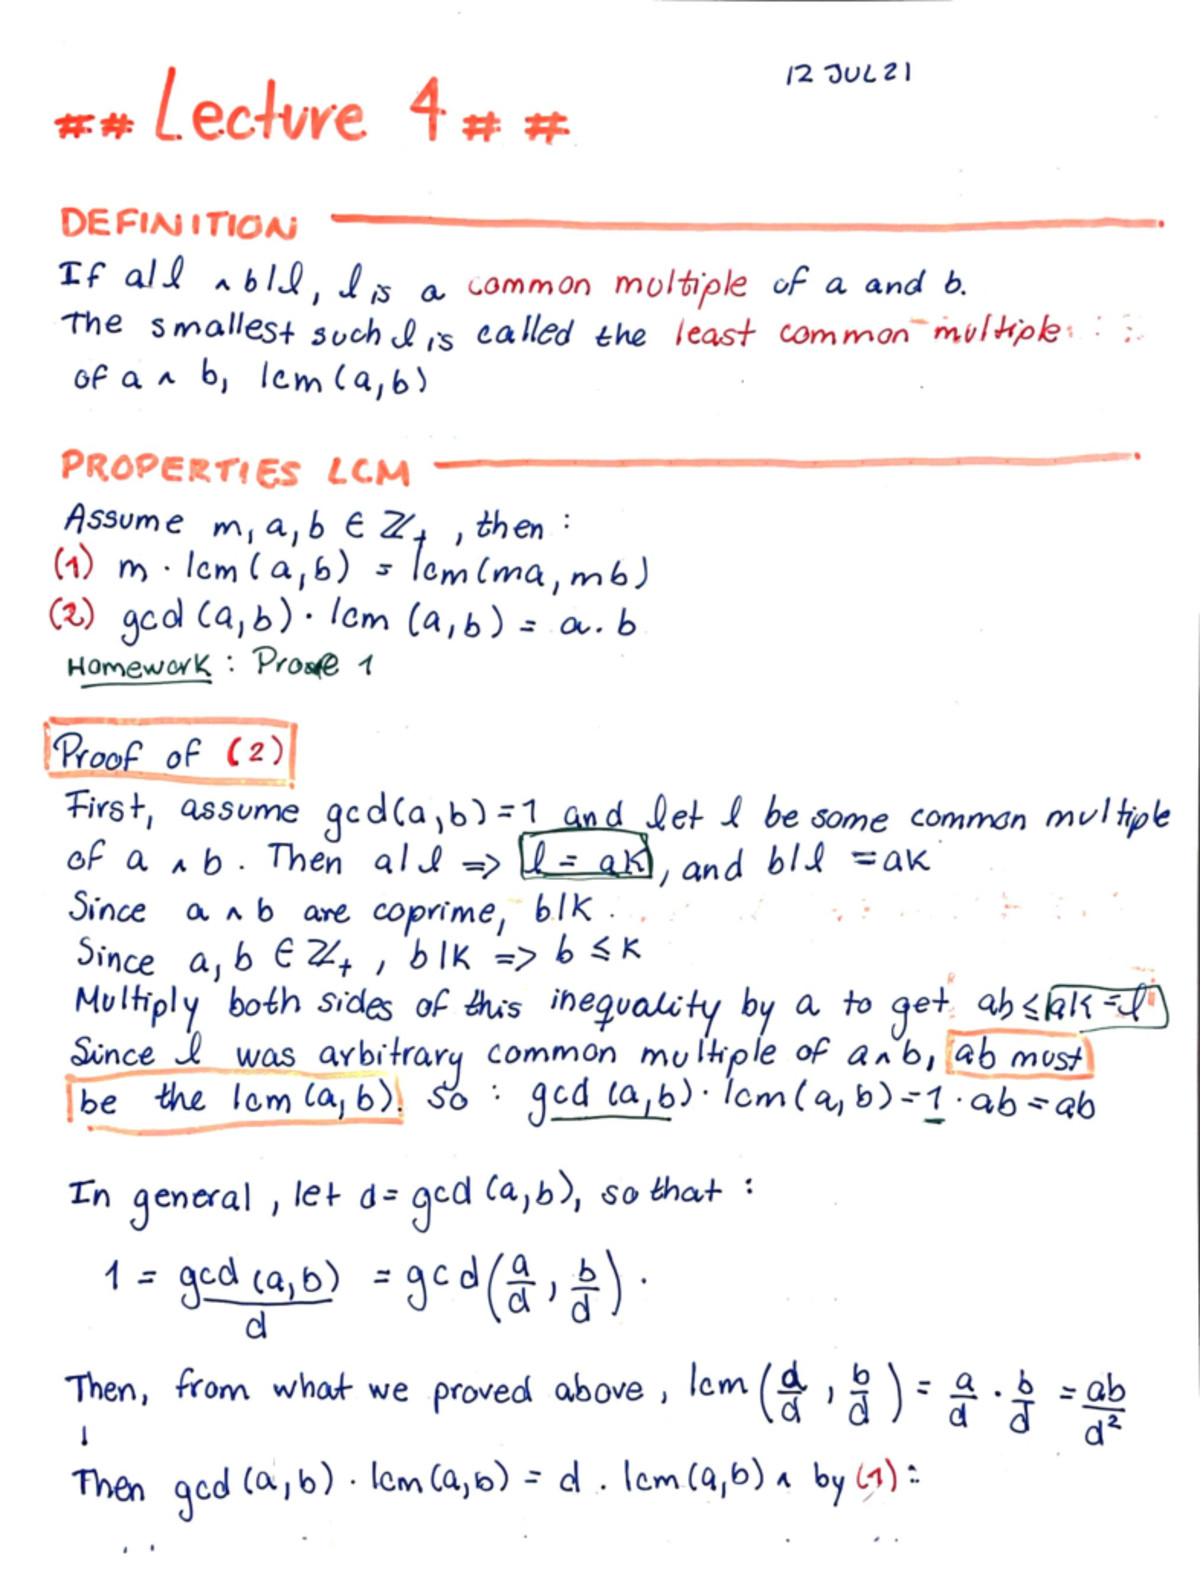 12 JUL 21
## Lecture 4 ##
DEFINITION
If a|l ∧ b|l, l is a common multiple of a and b.
The smallest such l is called the least common multiple
of a ∧ b, lcm (a,b)
PROPERTIES LCM
Assume m, a, b ∈ ℤ₊, then :
(1) m · lcm (a,b) = lcm (ma, mb)
(2) gcd (a,b) · lcm (a,b) = a. b
Homework : Prove 1
Proof of (2)
First, assume gcd(a,b)=1 and let l be some common multiple
of a ∧ b. Then a|l => l = ak, and b|l = ak
Since a ∧ b are coprime, b|k.
Since a, b ∈ ℤ₊, b|k => b ≤ k
Multiply both sides of this inequality by a to get ab ≤ ak = l
Since l was arbitrary common multiple of a ∧ b, ab must
be the lcm (a,b). So : gcd (a,b) · lcm (a,b) = 1 · ab = ab
In general, let d = gcd (a,b), so that :
1 = gcd (a,b)/d = gcd (a/d, b/d).
Then, from what we proved above, lcm (d/d, b/d) = a/d · b/d = ab/d²
↓
Then gcd (a,b) · lcm (a,b) = d . lcm (a,b) ∧ by (1) :